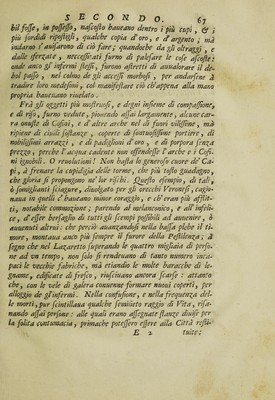 SECONDO. 67
bil fosse, in possesso, nascosto haueano dentro i più cupi, & i
più sordidi ripostigli, qualche copia d'oro, e d'argento; mà
andarno s'auisarono di ciò fare; quandoche da gli oltraggi, e
dalle sferzate, neccessitati furno di palesare le cose ascoste:
onde anco gl'infermi stessi, furono astretti di annalorare il de-
bil passo, nel colmo de gli accessi morbosi, per andarsene à
tradire loro medesimi, col manifestare ciò ch'appena alla mano
propria haueano riuelato.
Frà gli oggetti più mostruosi, e degni insieme di compassione,
e di riso, furno vedute, piouendo assai largamente, alcune car-
ra onuste di Cassini, e d'altre arche nel di fuori vilissime, mà
ripiene di ciuili sostanze, coperte di sontuosissime portiere, di
nobilissimi arrazzi, e di padiglioni d'oro, e di porpora senza
prezzo; perche l'acqua cadente non offendesse l'arche e i Cof-
ni ignobili. O reuolutioni! Non basta lo generoso cuore de' Ca-
pi, à frenare la cupidigia delle turme, che più tosto guadagno,
che gloria si propongono ne' lor rischi. Questo essempio, di tali,
ò somiglianti sciagure, diuolgato per gli orecchi Veronesi, cagio-
naua in quelli c'haueano minor coraggio, e ch'eran più afflit-
ti, notabile commotione; parendo al melanconico, e all'infeli-
ce, d'esser bersaglio di tutti gli scempi possibili ad auuenire, ò
auuenuti altrui: che perciò auanzandosi nella bassa plebe il ti-
more, montaua anco più sempre il furore della Pestilenza; à
segno che nel Lazaretto suprando le quattro migliaia di perso-
ne ad vn tempo, non solo si rendeuano di tanto numero inca-
paci le vecchie fabriche, mà etiandio le molte baracche di le-
gname, edificate di fresco, riusciuano ancora scarse: attanto
che, con le vele di galera conuenne formare nuoui coperti, per
alloggio de gl'infermi. Nella confusione, e nella frequenza del-
le morti, pur scintillaua qualche semiuiuo raggio di Vita, risa-
nando assai persone: alle quali erano assegnate stanze diuise per
la solita contumacia, primache potessero essere alla Città resti-
E 2 tuite: